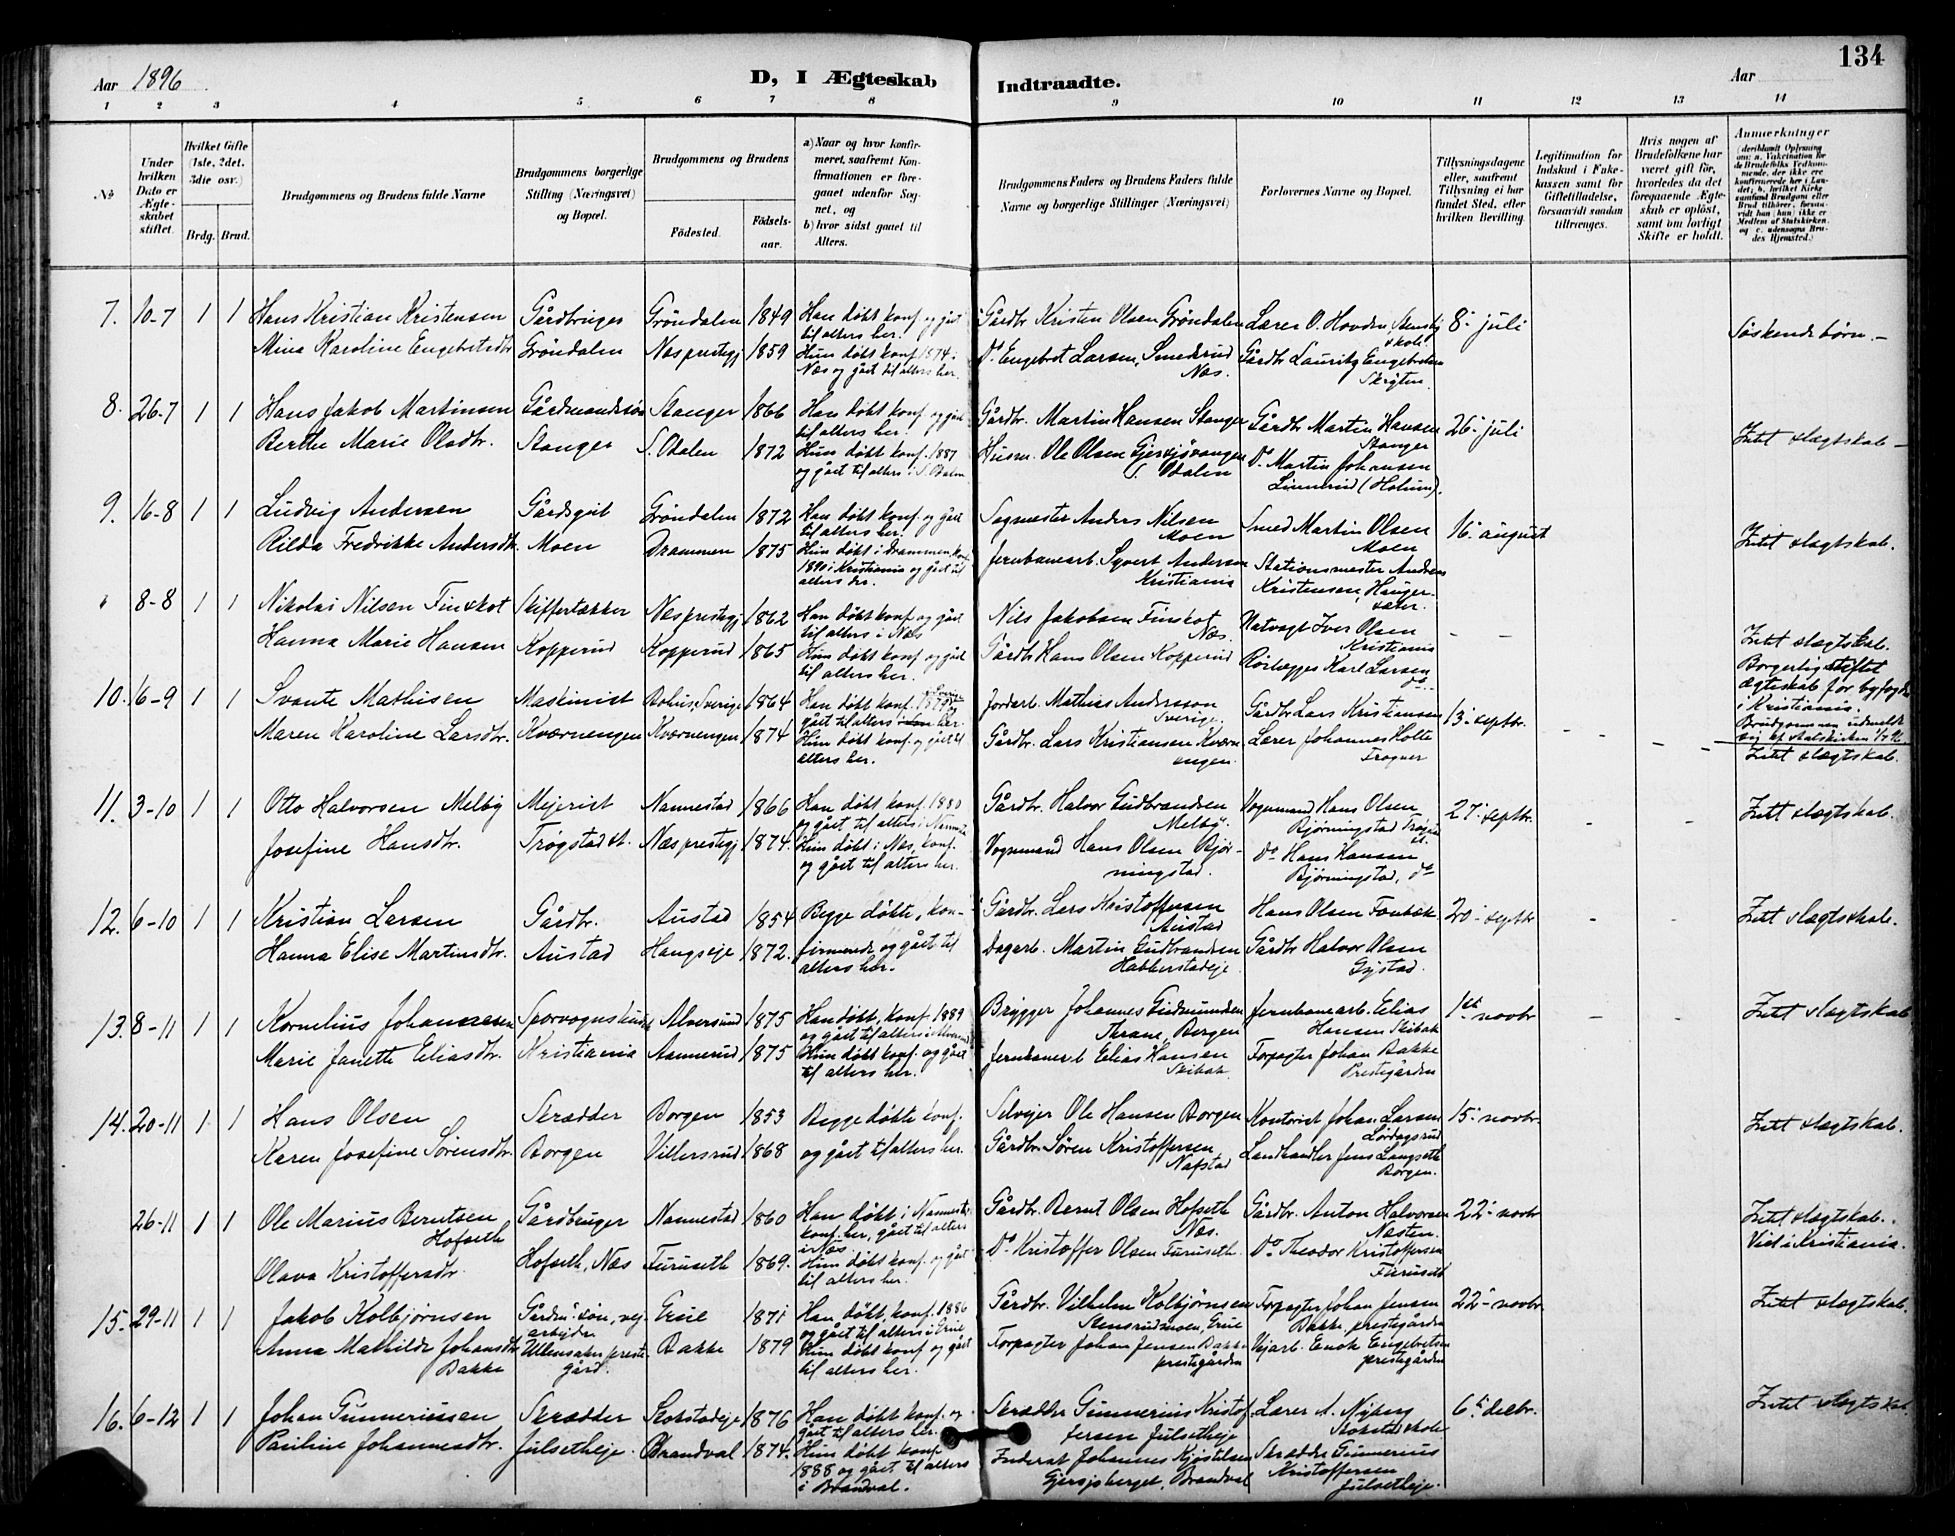 134
Aar 1896
D, I Ægteskab Indtraadte.
Aar
1 2 3 4 5 6 7 8 9 10 11 12 13 14
No
Under hvilken Dato er Ægteskabet stiftet.
Hvilket Gifte (1ste, 2det, 3die osv.)
Brdg. Brud.
Brudgommens og Brudens fulde Navne
Brudgommens borgerlige Stilling (Næringsvei) og Bopæl.
Brudgommens og Brudens
Fødested.
Fødselsaar.
a) Naar og hvor konfirmeret, saafremt Konfirmationen er foregaaet udenfor Sognet, og
b) hvor sidst gaaet til Alters.
Brudgommens Faders og Brudens Faders fulde Navne og borgerlige Stillinger (Næringsvei)
Forlovernes Navne og Bopæl.
Tillysningsdagene eller, saafremt Tillysning ei har fundet Sted, efter hvilken Bevilling.
Legitimation for Indskud i Enkekassen samt for Giftetilladelse, forsaavidt saadan tiltrænges.
Hvis nogen af Brudefolkene har været gift før, hvorledes da det foregaaende Ægteskab er opløst, samt om lovligt Skifte er holdt.
Anmærkninger
7. 10-7 1 1 Hans Kristian Kristensen Gårdbruger Grøndalen 1849 Han døbt konf. og gået til alters her. Gårdbr. Kristen Olsen Grøndalen Lærer O. Hovden, Stensby skole 8. juli Søskendebørn.-
Mina Karoline Engebretsdtr. Grøndalen Næs prestegj. 1859 Hun døbt konf. 1874 i Næs og gået til alters her. Do Engebret Larsen, Smedsrud Næs. Gårdbr Lauritz Engebretsen
8. 26-7 1 1 Hans Jakob Martinsen Gårdmandssøn Stanger 1866 Han døbt konf. og gået til alters her. Gårdbr. Martin Hansen Stanger Gårdbr Martin Hansen Stanger 26. juli Intet slægtskab -
Berthe Marie Olsdtr. Stanger S. Odalen 1872 Hun døbt konf. 1887 og gået til alters i S. Odalen. Husm. Ole Olsen S. Odalen Do Martin Johansen (Holum).
9. 16-8 1 1 Ludvig Andersen Gårdsgut Grøndalen 1872 Han døbt konf. og gået til alters her. Sagmester Anders Nilsen Moen Smed Martin Olsen Moen 16. august Intet slægtskab.
Rilda Fredrikke Andersdtr. Moen Drammen 1875 Hun døbt i Drammen, konf. 1890 i Kristiania og gået til alters do. Jernbanearb. Syvert Andersen Kristiania Stationsmester Andreas Kristensen, Haugersæter.
8-8 1 1 Nikolai Nilsen Finskot Skiffertækker Næs prestegj. 1862 Han døbt konf. og gået til alters i Næs Nils Jakobsen Finskot Næs. Natvagt Iver Olsen Kristiania - - Intet slægtskab.
Hanna Marie Hansen Kopperud Kopperud 1865 Hun døbt konf. og gået til alters her. Gårdbr. Hans Olsen Kopperud Rørlægger Karl Larsen do. Borgerlig stiftet ægteskab for byfogden i Kristiania.
Brudgommen udmeldt sig af statskirken
10. 6-9 1 1 Svante Mathisen Maskinist Bohus, Sverige 1864 Han døbt konf. i Sverige gået til alters her. Jordarb. Mathias Andersson Sverige. Gårdbr. Lars Kristiansen 13. septbr. - - - Intet slægtskab.
Maren Karoline Larsdtr. Kværnengen Kværnengen 1874 Hun døbt konf. og gået til alters her. Gårdbr. Lars Kristiansen Kværnengen. Lærer Johannes Holte Frogner
11. 3-10 1 1 Otto Halvorsen Melby Mejerist Nannestad 1866 Han døbt konf. 1880 og gået til alters i Nannestad Gårdbr. Halvor Gudbrandsen Melby. Vognmand Hans Olsen Bjørningstad 27. septbr. - - Intet slægtskab.
Josefine Hansdtr. Trøgstad st. Næs prestegj. 1874. Hun døbt i Næs, konf. og gået til alters her. Vognmand Hans Olsen Bjørningstad. Do Hans Hansen Bjørningstad, do
12. 6-10 1 1 Kristian Larsen Gårdbr. Austad 1854 Begge døbte, konfirmerede og gået til alters her. Gårdbr. Lars Kristoffersen Austad Hans Olsen 20. septbr - - Intet slægtskab.
Hanna Elise Martinsdtr. Austad Haugseje 1872. Dagarb. Martin Gudbrandsen Habberstadeje Gårdbr Halvor Olsen Gystad.
13. 8-11 1 1 Kornelius Johannesen Sporvognskusk Alversund 1875 Han døbt, konf. 1889 og gået til alters i Alversund Brygger Johannes Gudmundsen Thrane, Bergen Jernbanearb. Elias Hansen Skibak 1ste novbr - - Intet slægtskab
Marie Janette Eliasdtr. Kristiania Aannerud 1875 Hun døbt konf. og gået til alters her. Jernbanearb Elias Hansen Skibak. Forpagter Johan Bakke Prestegården
14. 20-11 1 1 Hans Olsen Skrædder Borgen 1853 Begge døbte konf. og gået til alters her. Selvejer Ole Hansen Borgen Kontorist Johan Larsen Lørdagsrud 15. novbr. Intet slægtskab.
Karen Josefine Sørensdtr. Borgen Villersrud 1868 Gårdbr. Søren Kristoffersen Nafstad Landhandler Jens Langseth Borgen.
26-11 1 1 Ole Marius Berntsen Hofseth Gårdbruger Nannestad 1860 Han døbt i Nannestad, konf. her, gået til alters i Næs. Gårdbr. Bernt Olsen Hofseth Næs. Gårdbr. Anton Halvorsen Næsten. 22. novbr Intet slægtskab.
Viet i Kristiania.
Olava Kristoffersdtr. Hofseth, Næs Furuseth 1869. Hun døbt konf. og gået til alters her. Do Kristoffer Olsen Furuseth. Do Theodor Kristoffersen Furuseth
15. 29-11 1 1 Jakob Kolbjørnsen Gårdm. søn, vejarbejder Grue 1871 Han døbt, konf. 1886 og gået til alters i Grue Gårdbr. Vilhelm Kolbjørnsen Stensrudmoen, Grue Forpagter Johan Jensen Bakke, prestegården 22. novbr. Intet slægtskab.
Anna Mathilde Johansdtr. Bakke Ullensaker prestegård. Bakke 1879 Hun døbt konf. og gået til alters her. Forpagter Johan Jensen Bakke prestegården Vejarb. Enok Engebretsen prestegården
16. 6-12 1 1 Johan Gunneriussen Skrædder Stokstadeje 1876 Han døbt konf. og gået til alters her. Skrædder Gunnerius Kristoffersen Julsetheje Lærer A. Nyberg Stokstad skole 6. decbr. Intet slægtskab
Pauline Johannesdtr. Julsetheje. Brandval 1874. Hun døbt konf. 1888 og gået til alters i Brandval. Inderst Johannes Kjøstelsen Gjersjøberget, Brandval Skrædder Gunnerius Kristoffersen Julsetheje.